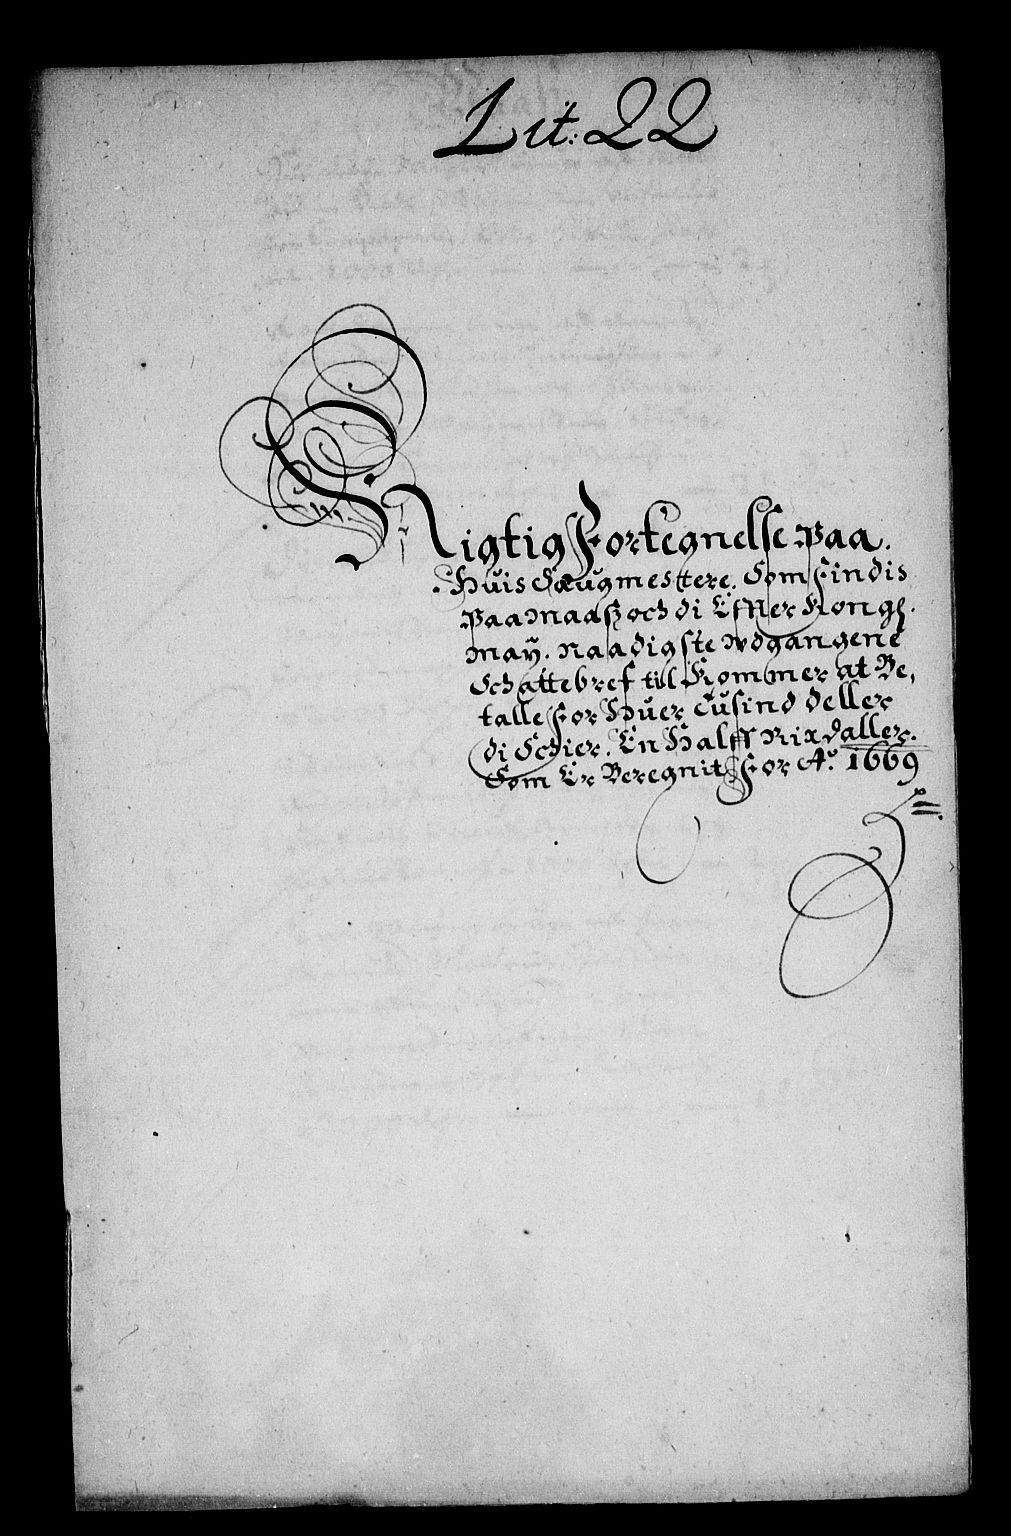 Lit: 22
Rigtig Fortegnelse Paa.
Huis Saugmestere. Som Findis
Paa Maaß och di Effter Kongl.
May. Naadigste Wdgangene
Schattebref til Kommer at Be,
talle For Huer Tusind Deller
di Schier. En Halff Rixdaller.
Som Er Beregnit For Ao. 1669